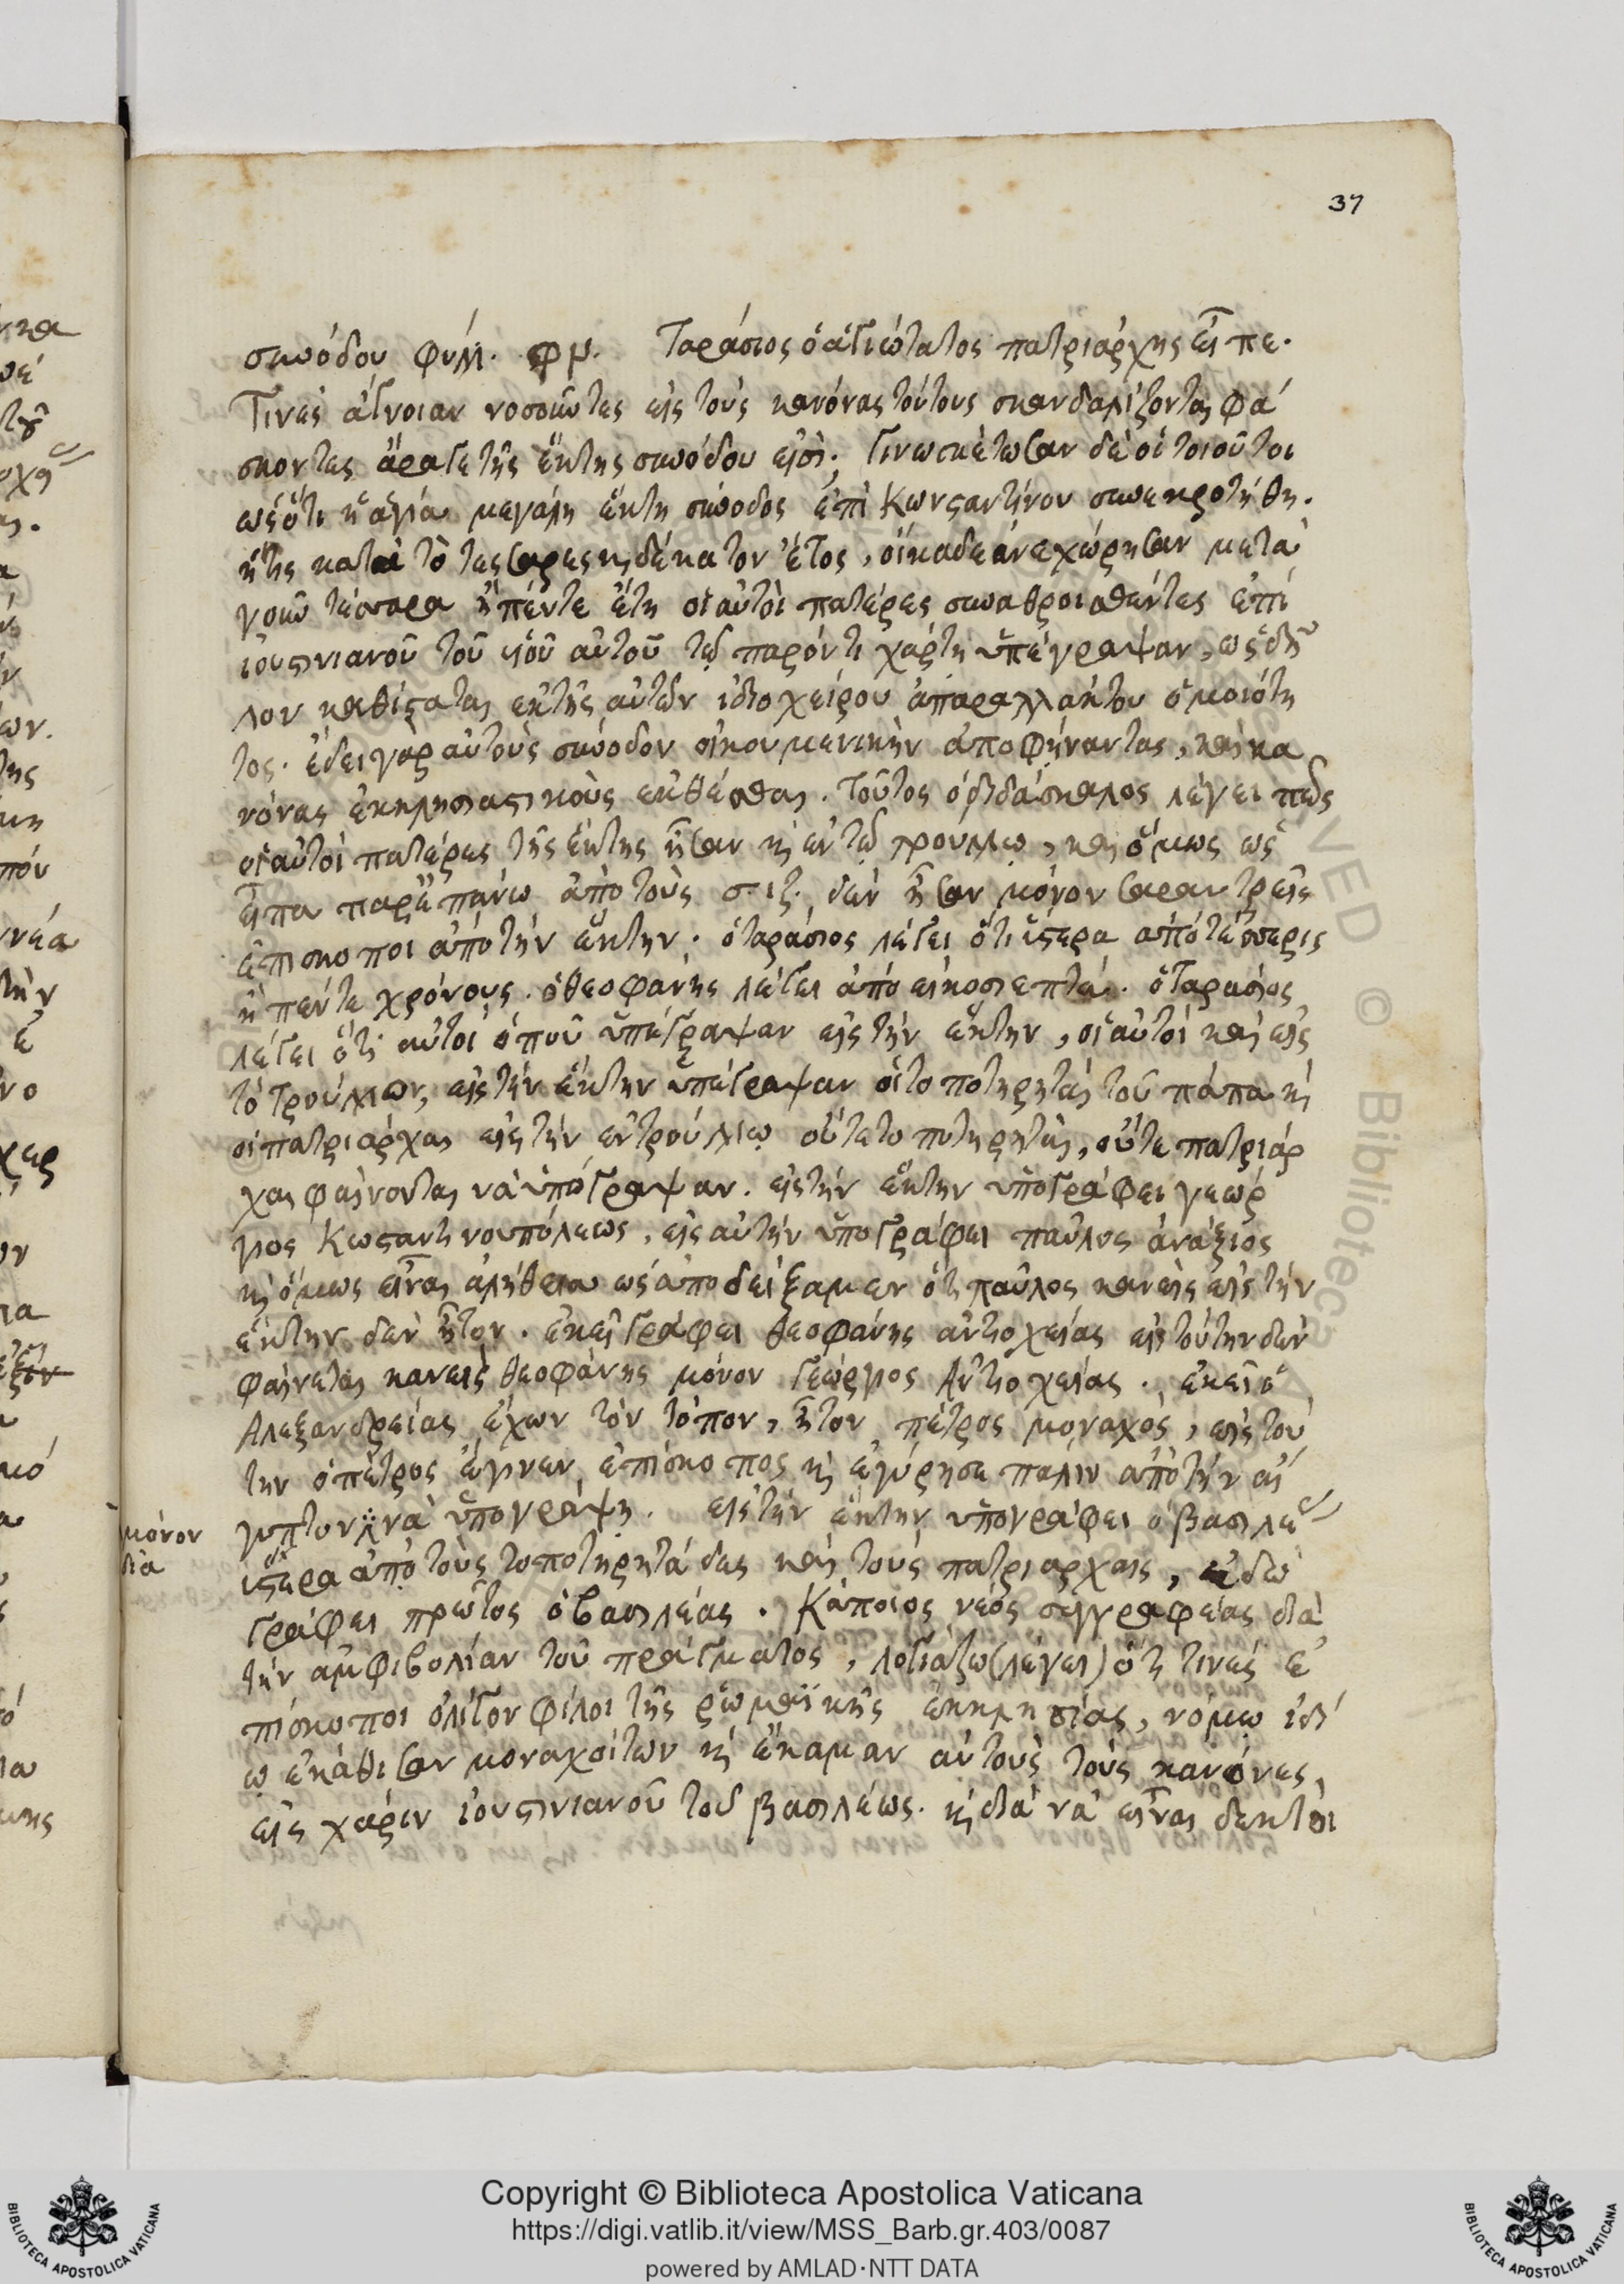 37
συνόδου φύλλ. φμ. Ταράσιος ὁ ἁγιώτατος πατριάρχης εἶπε.
Τινὲς ἄγνοιαν νοσοῦντες εἰς τοὺς κανόνας τούτους σκανδαλίζονται φά
σκοντες ἄραγε τῆς ἕκτης συνόδου εἰσί; Γινωσκέτωσαν δὲ οἱ τοιοῦτοι
ὡς ὅτι ἡ ἁγία μεγάλη ἕκτη σύνοδος ἐπὶ Κωνσταντίνου συνεκροτήθη.
ἥτις κατὰ τὸ τεσσαρεσκαιδέκατον ἔτος, οἴκαδε ἀνεχώρησαν μετὰ
γοῦν τέσσαρα ἢ πέντε ἔτη οἱ αὐτοὶ πατέρες συναθροισθέντες ἐπὶ
ἰουστινιανοῦ τοῦ υἱοῦ αὐτοῦ τῷ παρόντι χάρτη ὑπέγραψαν, ὡς δῆ
λον καθίσταται ἐκ τῆς αὐτῶν ἰδιοχείρου ἀπαραλλάκτου ὁμοιότη
τος. ἔδει γὰρ αὐτοὺς σύνοδον οἰκουμενικὴν ἀποφήναντας, καὶ κα
νόνας ἐκκλησιαστικοὺς ἐκθέσθαι. Τοῦτος ὁ διδάσκαλος λέγει πῶς
οἱ αὐτοὶ πατέρες τῆς ἕκτης ἦσαν κὶ ἐν τῷ τρούλλῳ, καὶ ὅμως ὡς
εἶπα παρεπάνω ἀπὸ τοὺς σ ιζ. δὲν ἦσαν μόνον σαραντρεῖς
ἐπίσκοποι ἀπὸ τὴν ἕκτην. ὁ ταράσιος λέγει ὅτι ὕστερα ἀπὸ τέσσερις
ἢ πέντε χρόνους. ὁ θεοφάνης λέγει ἀπὸ εἰκοσιεπτά. ὁ ταράσιος
λέγει ὅτι αὐτοὶ ὁποῦ ὑπέγραψαν εἰς τὴν ἕκτην, οἱ αὐτοὶ καὶ εἰς
τὸ τρούλλιον, εἰς τὴν ἕκτην ὑπέγραψαν οἱ τοποτηρηταὶ τοῦ πάπα κὶ
οἱ πατριάρχαι εἰς τὴν ἐν τρούλλῳ οὔτε τοποτηρηταὶ, οὔτε πατριάρ
χαι φαίνονται νὰ ὑπόγραψαν. εἰς τὴν ἕκτην ὑπογράφει γεώρ
γιος Κωσταντινουπόλεως, εἰς αὐτὴν ὑπογράφει παῦλος ἀνάξιος
κὶ ὅμως εἶναι ἀλήθεια ὡς ἀποδείξαμεν ὅτι παῦλος κανεὶς εἰς τὴν
ἕκτην δὲν ἦτον. ἐκεῖ γράφει θεοφάνης ἀντιοχείας εἰς τούτην δὲν
φαίνεται κανεὶς θεοφάνης μόνον Γεώργιος Ἀντιοχείας. ἐκεῖ ὁ
Ἀλεξανδρείας ἔχων τὸν τόπον, ἦτον πέτρος μοναχός, εἰς τού
την ὁ πέτρος ἔγινεν ἐπίσκοπος κὶ ἐγύρησε πάλιν ἀπὸ τὴν αἴ
γυπτον νὰ ὑπογράψῃ. εἰς τὴν ἕκτην ὑπογράφει ὁ βασιλε
μόνον
διὰ
ὕστερα ἀπὸ τοὺς τοποτηρητάδες καὶ τοὺς πατριάρχαις, ἐδῶ
γράφει πρῶτος ὁ βασιλέας. Κάποιος νέος συγγραφέας διὰ
τὴν ἀμφιβολίαν τοῦ πράγματος, λογιάζω (λέγει) ὅτι τινὲς ἐ
πίσκοποι ὀλίγον φίλοι τῆς ῥωμαϊκῆς ἐκκλησίας, νόμῳ ἰδί
ῳ ἐκάθισαν μοναχοίτων κὶ ἔκαμαν αὐτοὺς τοὺς κανόνες
εἰς χάριν ἰουστινιανοῦ τοῦ βασιλέως. κὶ διὰ νὰ εἶναι δεκτοὶ
Copyright © Biblioteca Apostolica Vaticana
https://digi.vatlib.it/view/MSS_Barb.gr.403/0087
powered by AMLAD·NTT DATA